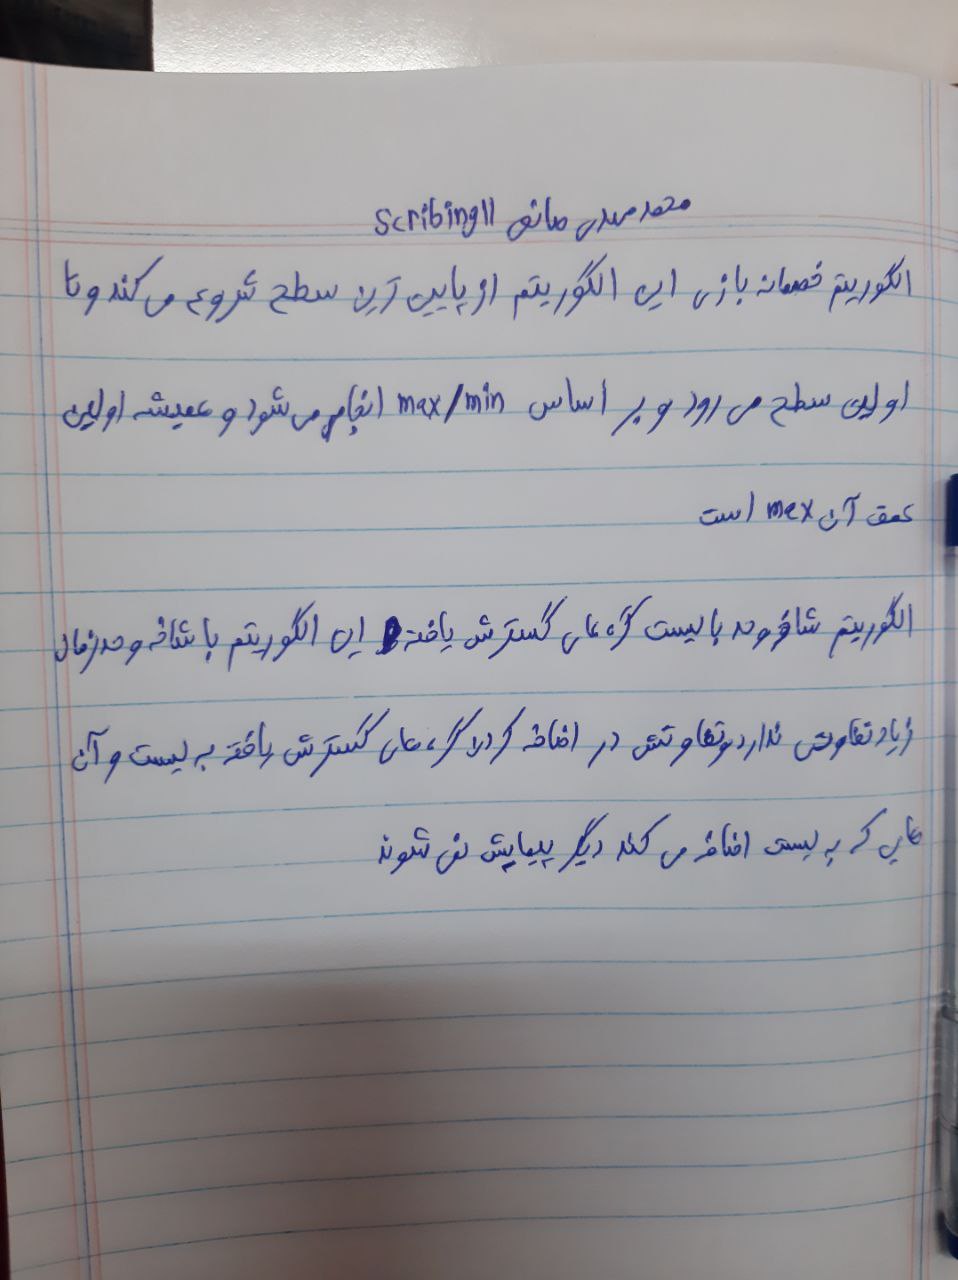 محمد مهدی صانعی Scribing11
الگوریتم خصمانه بازی این الگوریتم از پایین ترین سطح شروع می کند و تا
اولین سطح می رود و بر اساس max/min انجام می شود و همیشه اولین
عمق آن max است
الگوریتم شاخه و حد با لیست گره های گسترش یافته این الگوریتم با شاخه و حد زمان
زیاد تفاوتی ندارد و تفاوتش در اضافه کردن گره های گسترش یافته به لیست و آن
هایی که به لیست اضافه می کند دیگر پیمایش نمی شوند